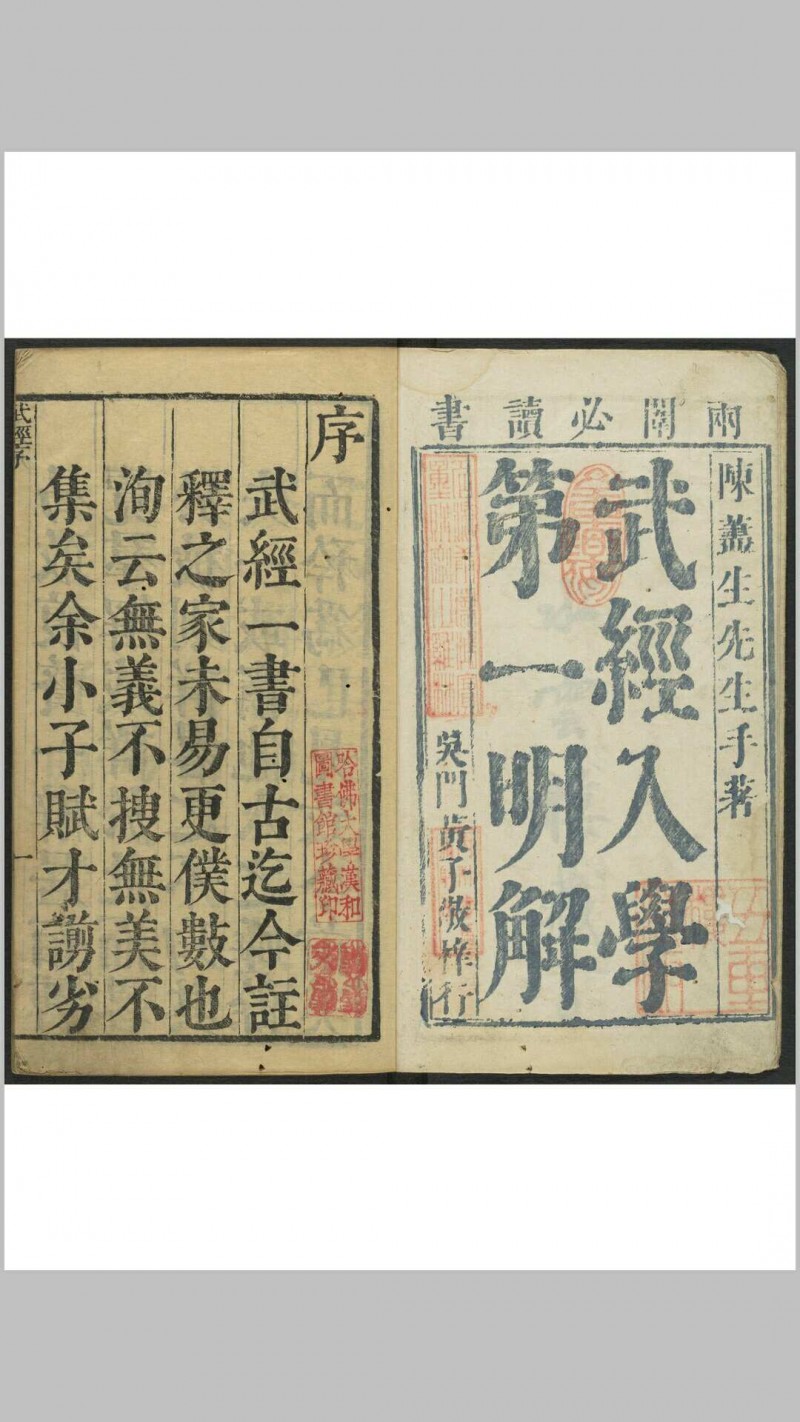 兩闈必讀書
陳藎生先生手著
武經入學
第一明解
吳門黃子發梓行
序
哈佛大學漢和
圖書館珍藏印
武經一書自古迄今註
釋之家未易更僕數也
洵云無義不搜無美不
集矣余小子賦才謭劣
武經序
一